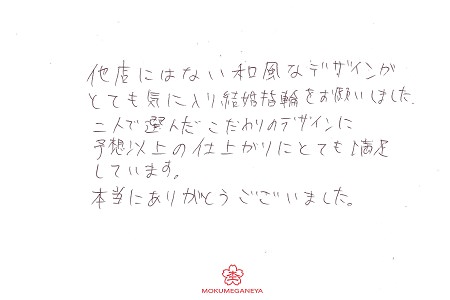 他店にはない和風なデザインが
とても気に入り結婚指輪をお願いしました。
二人で選んだこだわりのデザインに
予想以上の仕上がりにとても満足
しています。
本当にありがとうございました。
MOKUMEGANEYA